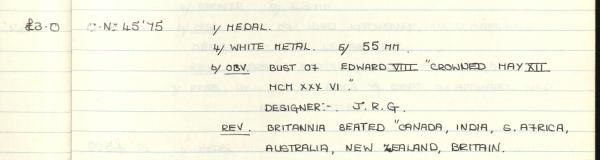 £3.0 C.Nº 45'75 1/ MEDAL.
4/ WHITE METAL. 5/ 55 MM.
6/ OBV. BUST OF EDWARD VIII "CROWNED MAY XII
MCM XXX VI."
DESIGNER:-. J.R.G.
REV. BRITANNIA SEATED "CANADA, INDIA, S. AFRICA,
AUSTRALIA, NEW ZEALAND, BRITAIN.